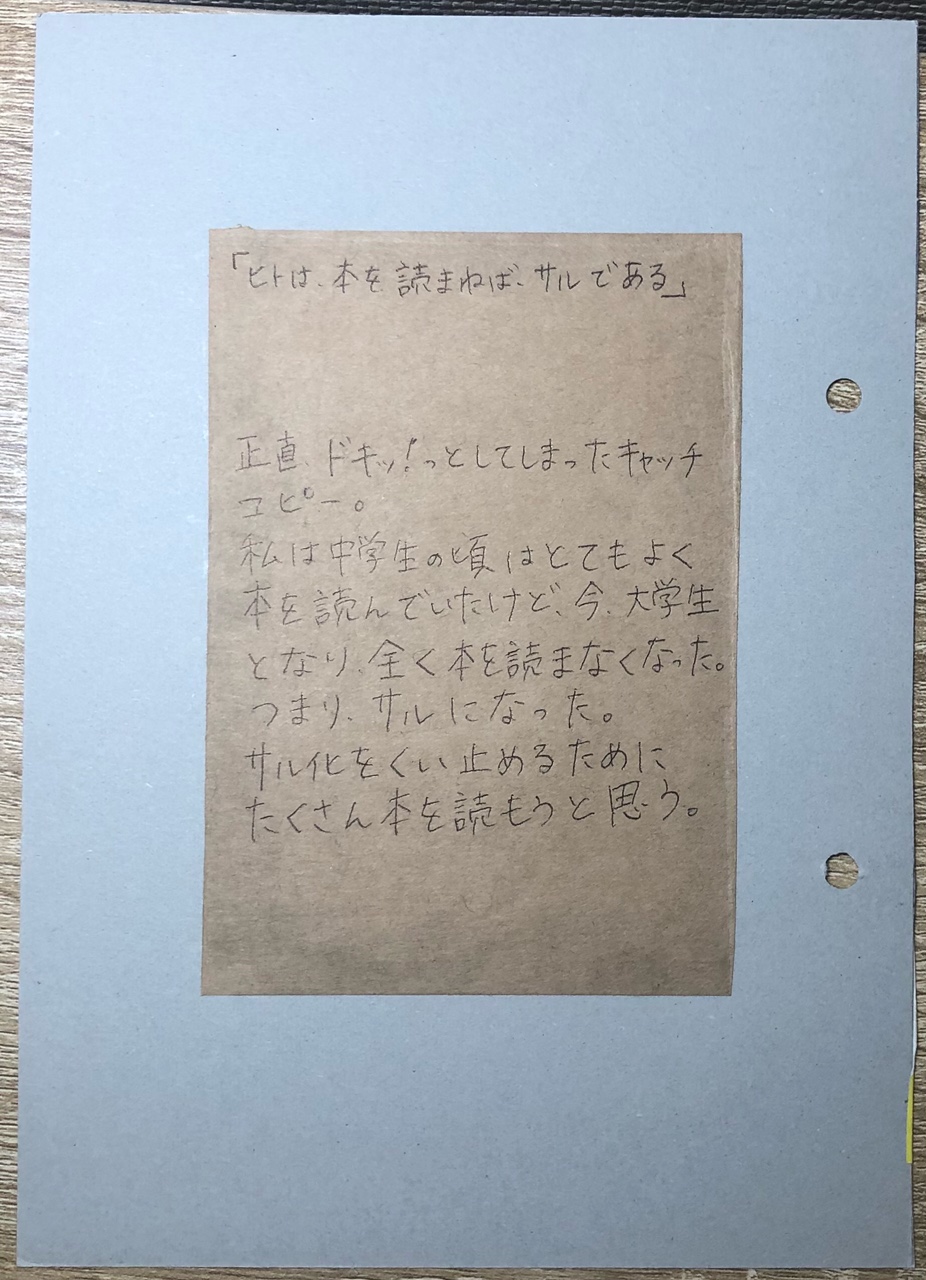 「ヒトは、本を読まねば、サルである」
正直、ドキッ!っとしてしまったキャッチ
コピー。
私は中学生の頃はとてもよく
本を読んでいたけど、今、大学生
となり、全く本を読まなくなった。
つまり、サルになった。
サル化をくい止めるために
たくさん本を読もうと思う。